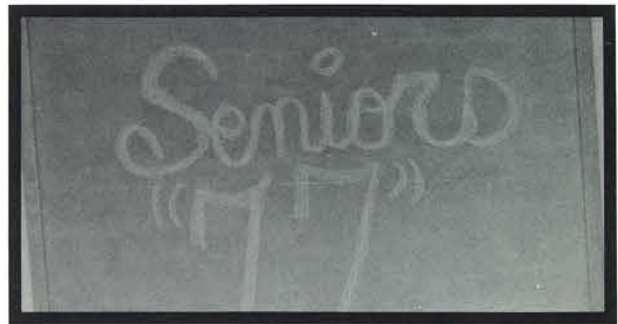 Seniors
"77"